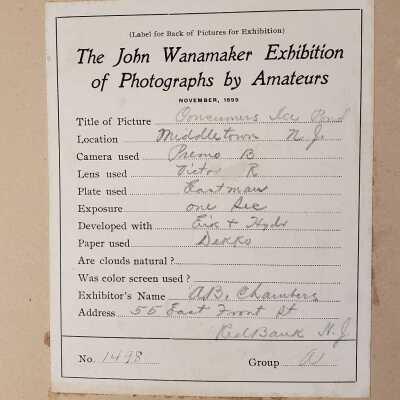 (Label for Back of Pictures for Exhibition)
The John Wanamaker Exhibition
of Photographs by Amateurs
NOVEMBER, 1899
Title of Picture Consumers Ice Pond
Location Middletown N. J.
Camera used Premo B
Lens used Victor R
Plate used Eastman
Exposure one Sec
Developed with Eik + Hydr
Paper used Dekko
Are clouds natural?
Was color screen used?
Exhibitor's Name A.B. Chambers
Address 55 East Front St
Red Bank N. J
No. 1498 Group A